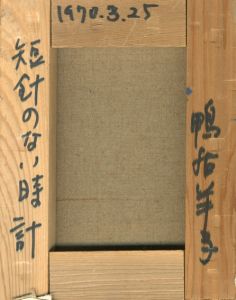 1970.3.25
短針のない時計
鴨居羊子